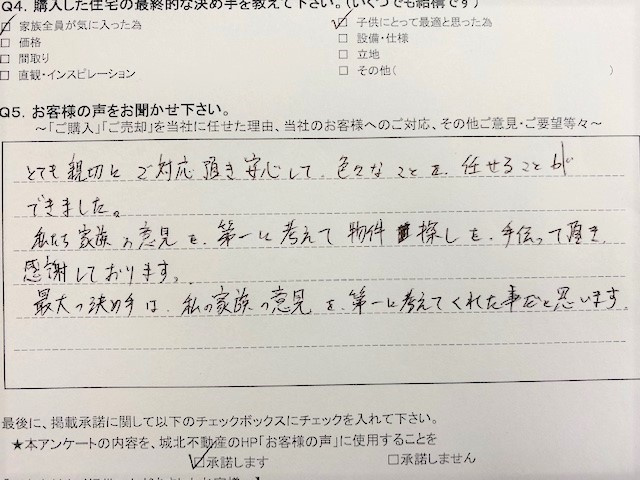 Q4. 購入した住宅の最終的な決め手を教えて下さい。(いくつでも結構です)
☑ 家族全員が気に入った為
☑ 子供にとって最適と思った為
□ 価格
□ 設備・仕様
□ 間取り
□ 立地
□ 直観・インスピレーション
□ その他( )
Q5. お客様の声をお聞かせ下さい。
～「ご購入」「ご売却」を当社に任せた理由、当社のお客様へのご対応、その他ご意見・ご要望等々～
とても親切にご対応頂き安心して、色々なことを、任せることが
できました。
私たち家族の意見を、第一に考えて物件探しを、手伝って頂き、
感謝しております。
最大の決め手は、私の家族の意見を、第一に考えてくれた事だと思います。
最後に、掲載承諾に関して以下のチェックボックスにチェックを入れて下さい。
★本アンケートの内容を、城北不動産のHP「お客様の声」に使用することを
☑承諾します
□承諾しません